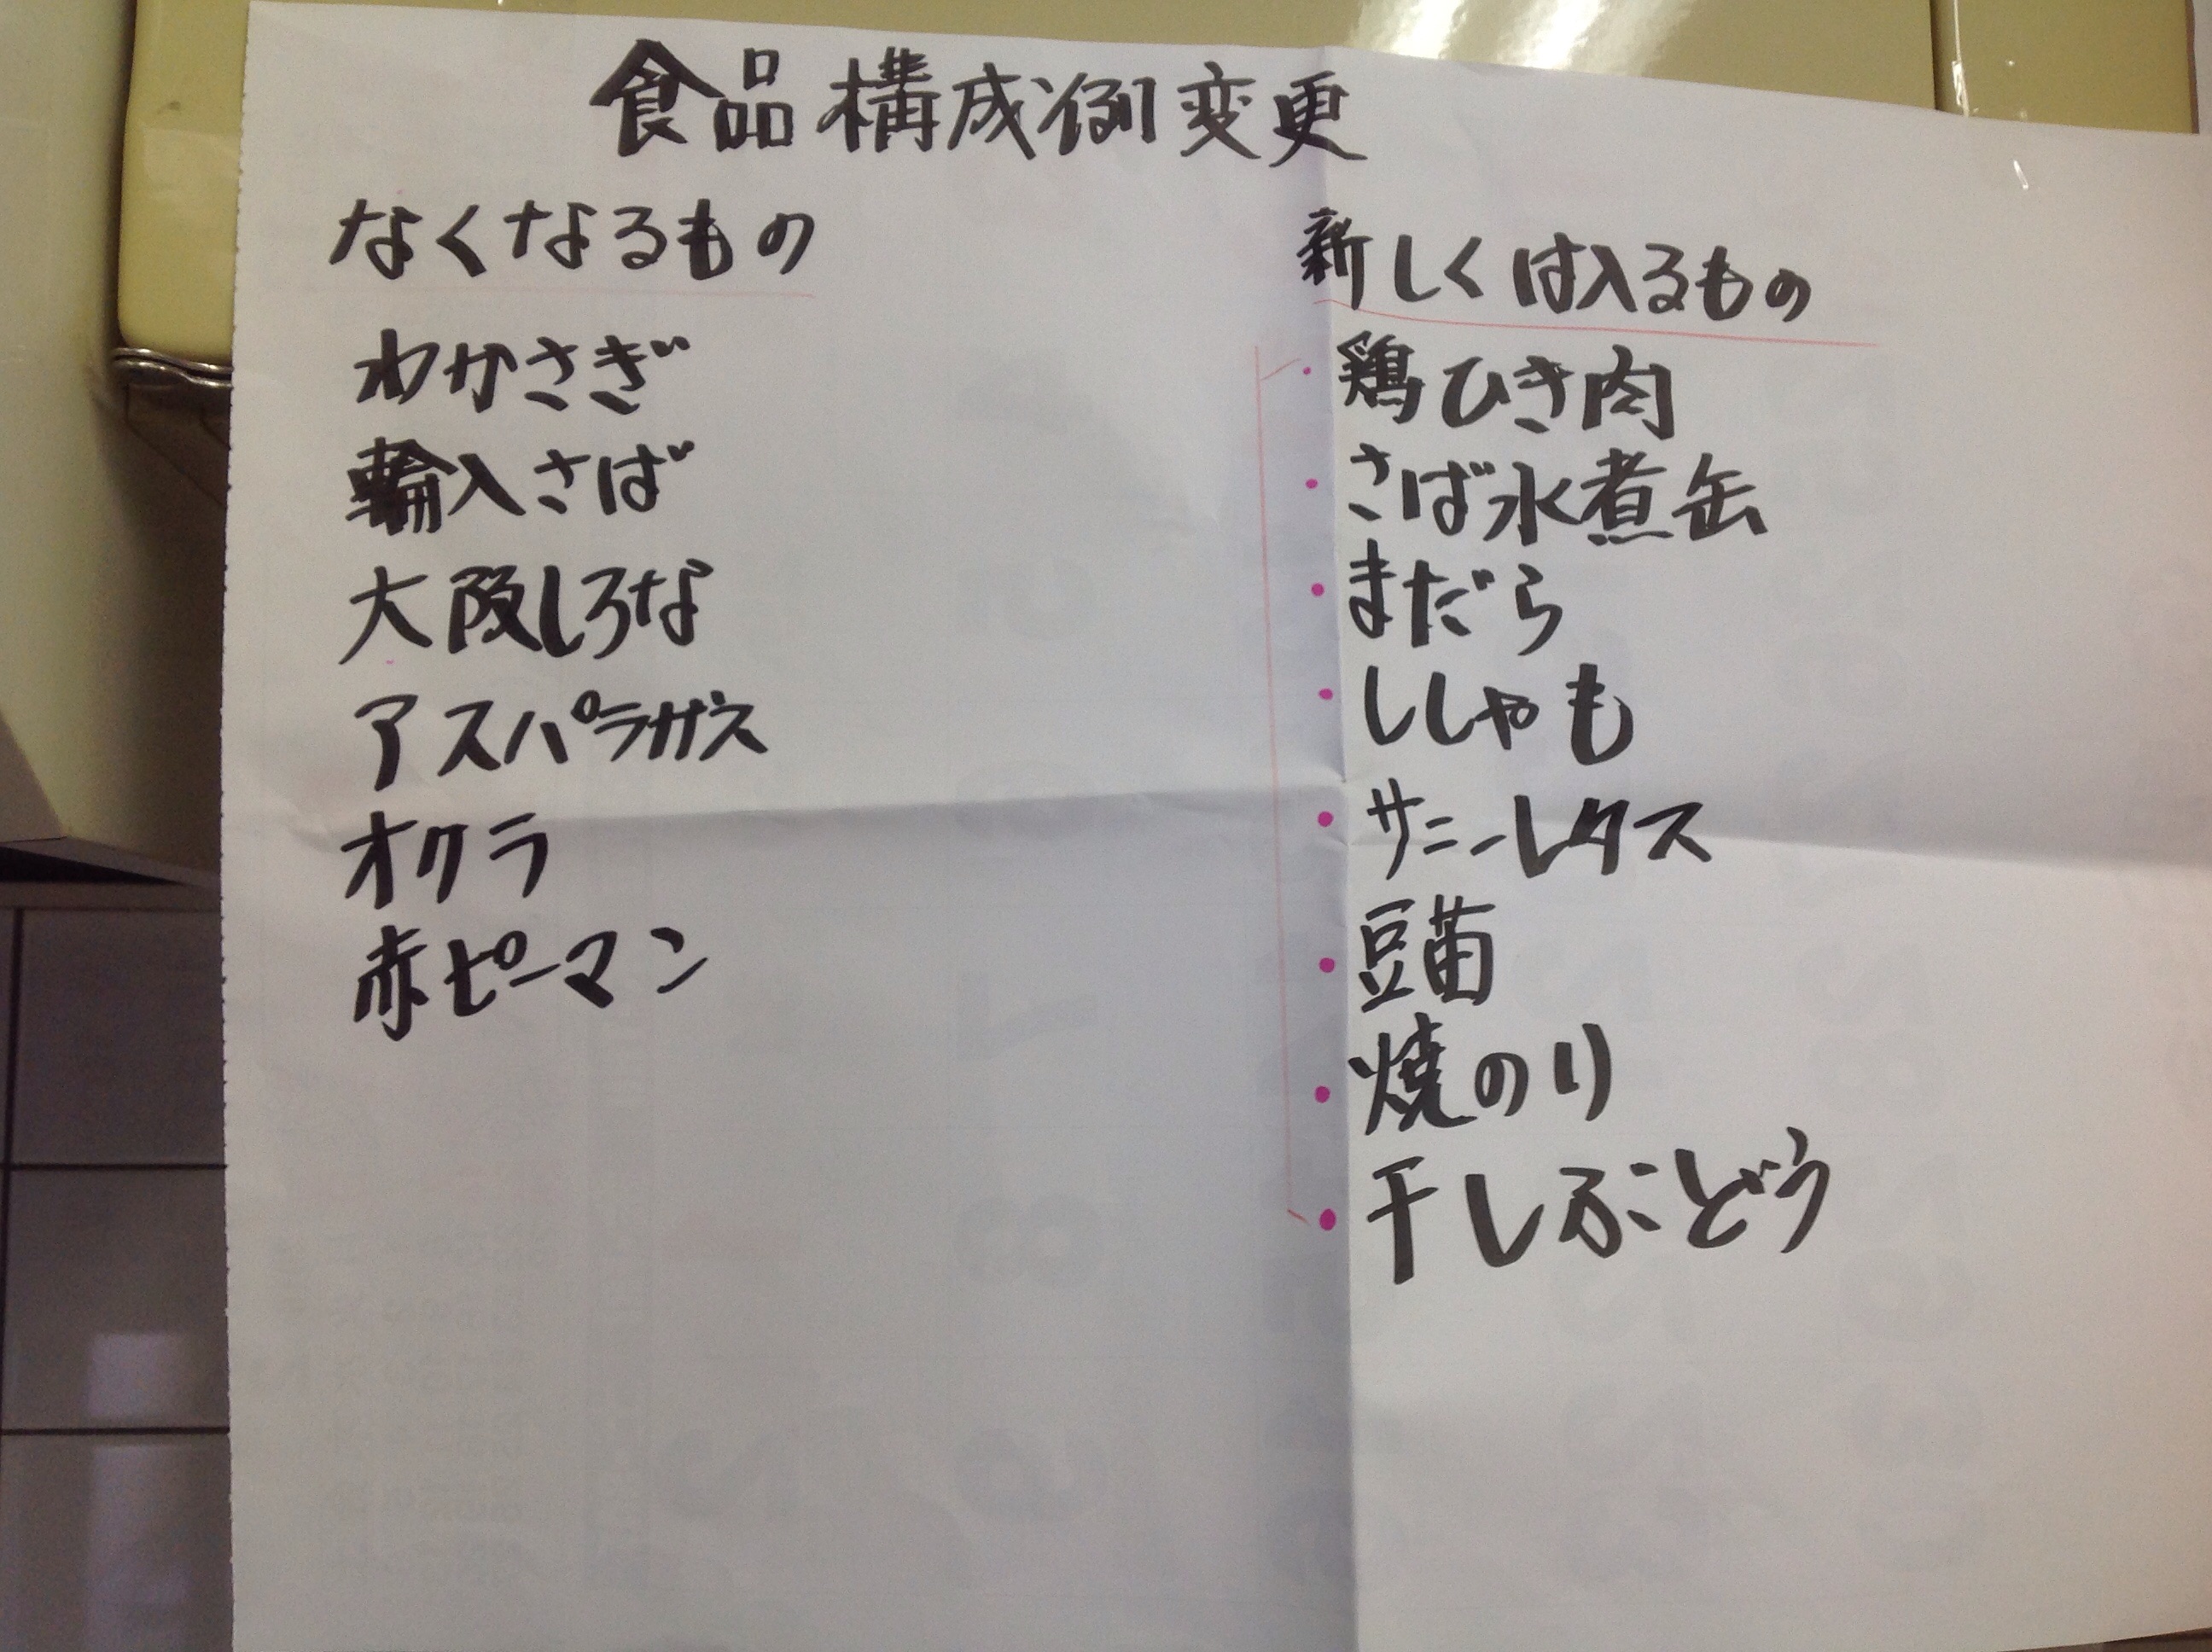 食品構成例変更
なくなるもの
わかさぎ
輸入さば
大阪しろな
アスパラガス
オクラ
赤ピーマン
新しくは入るもの
・鶏ひき肉
・さば水煮缶
・まだら
・ししゃも
・サニーレタス
・豆苗
・焼のり
・干しぶどう